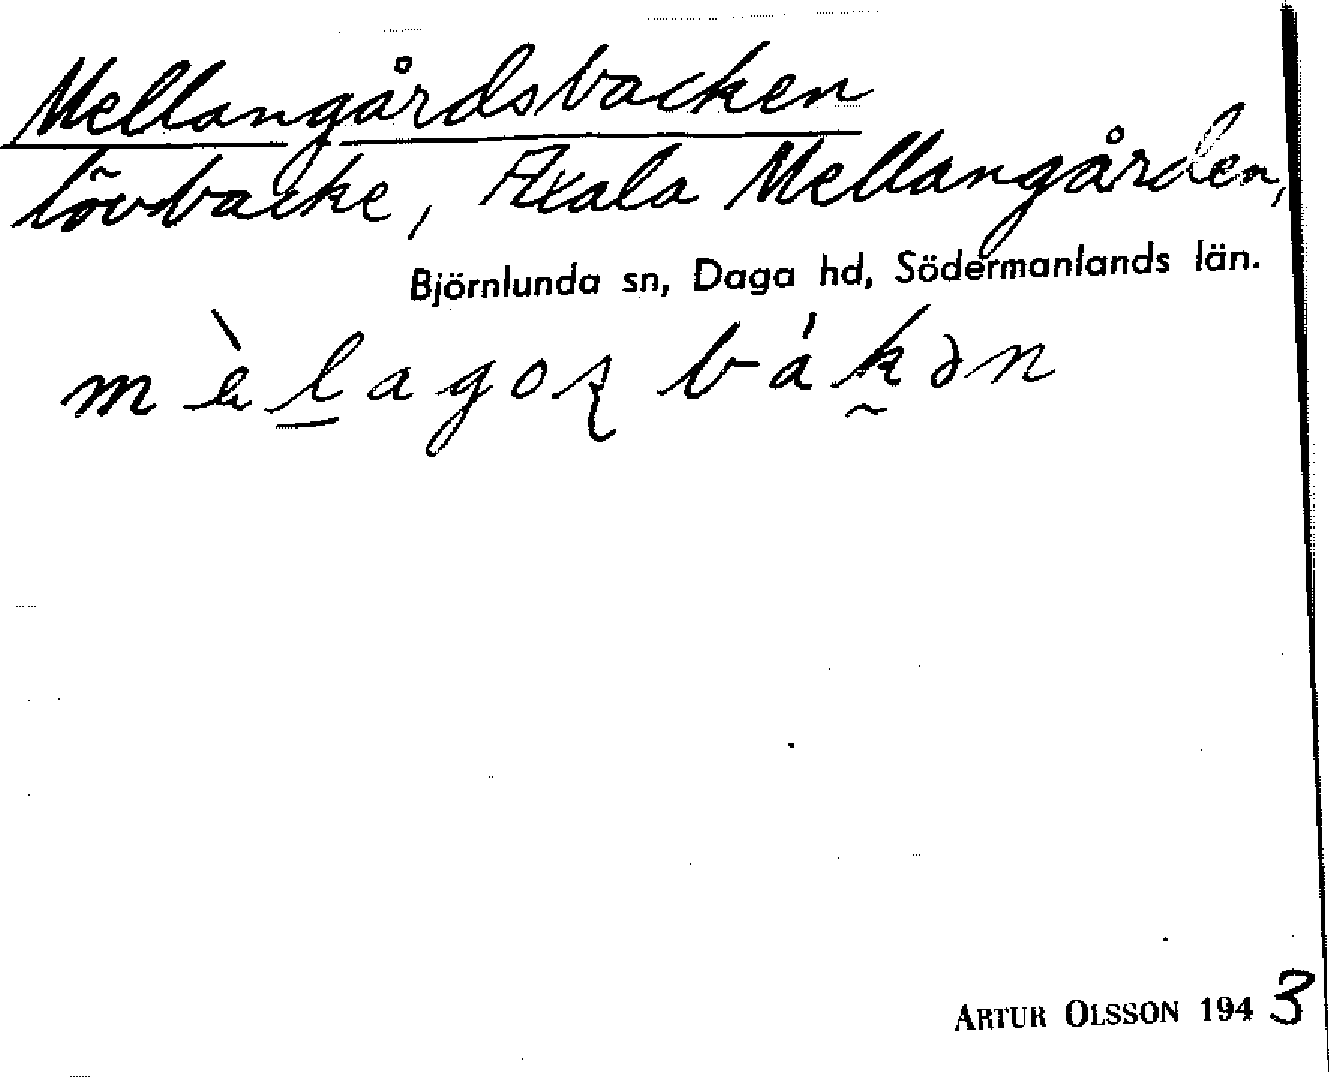 Mellangårdsbacken
lövbacke, Axala Mellangården,
Björnlunda sn, Daga hd, Södermanlands län.
ARTUR OLSSON 1943